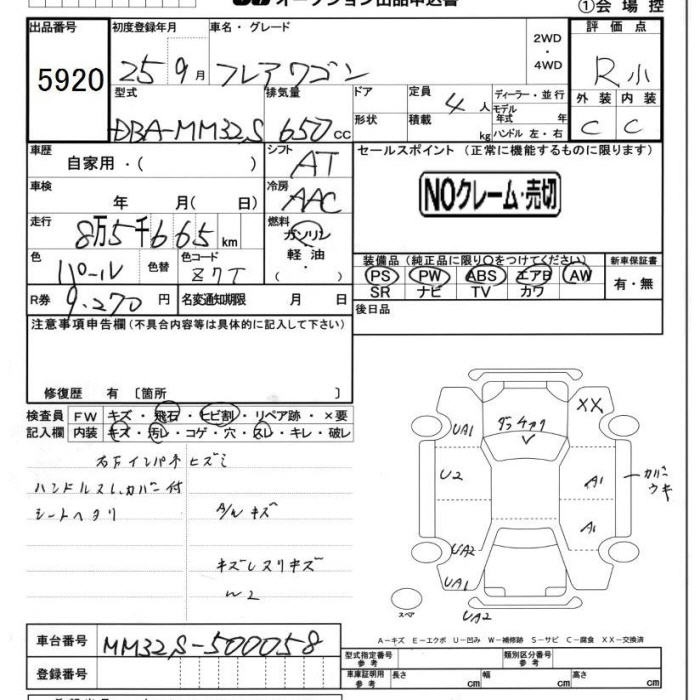 オークション出品申込書
①会場控
出品番号 初度登録年月 車名・グレード 2WD・4WD 評価点
5920 25 9月 フレアワゴン R小
型式 排気量 ドア 定員 4人 ディーラー・並行 外装 内装
モデル年式 年
DBA-MM32S 650cc 形状 積載 kg ハンドル 左・右 C C
車歴 シフト セールスポイント (正常に機能するものに限ります)
自家用・( ) AT
車検 年 月( 日) 冷房 AAC NOクレーム・売切
走行 8万5千665km 燃料 ガソリン・軽油・( )
色 パール 色替 色コード Z7T
装備品 (純正品に限り○をつけてください) 新車保証書
PS PW ABS エアB AW 有・無
SR ナビ TV カワ
R券 9,270円 名変通知期限 月 日 後日品
注意事項申告欄(不具合内容等は具体的に記入して下さい)
修復歴 有 〔箇所 〕
検査員 FW キズ・飛石・ヒビ割・リペア跡・×要
記入欄 内装 キズ・汚レ・コゲ・穴・スレ・キレ・破レ
右下インパネヒズミ
ハンドルスレ、カバー付
シートヘタリ A/W キズ
キズレスリキズ
W2
ダッチアリ
XX
UA1
U2
A1
カバーウキ
A1
UA2
UA1
UA2
スペア
A-キズ E-エクボ U-凹み W-補修跡 S-サビ C-腐食 XX-交換済
車台番号 MM32S-500058
登録番号
型式指定番号 参考 類別区分番号 参考
車庫証明用 参考 長さ cm 幅 cm 高さ cm